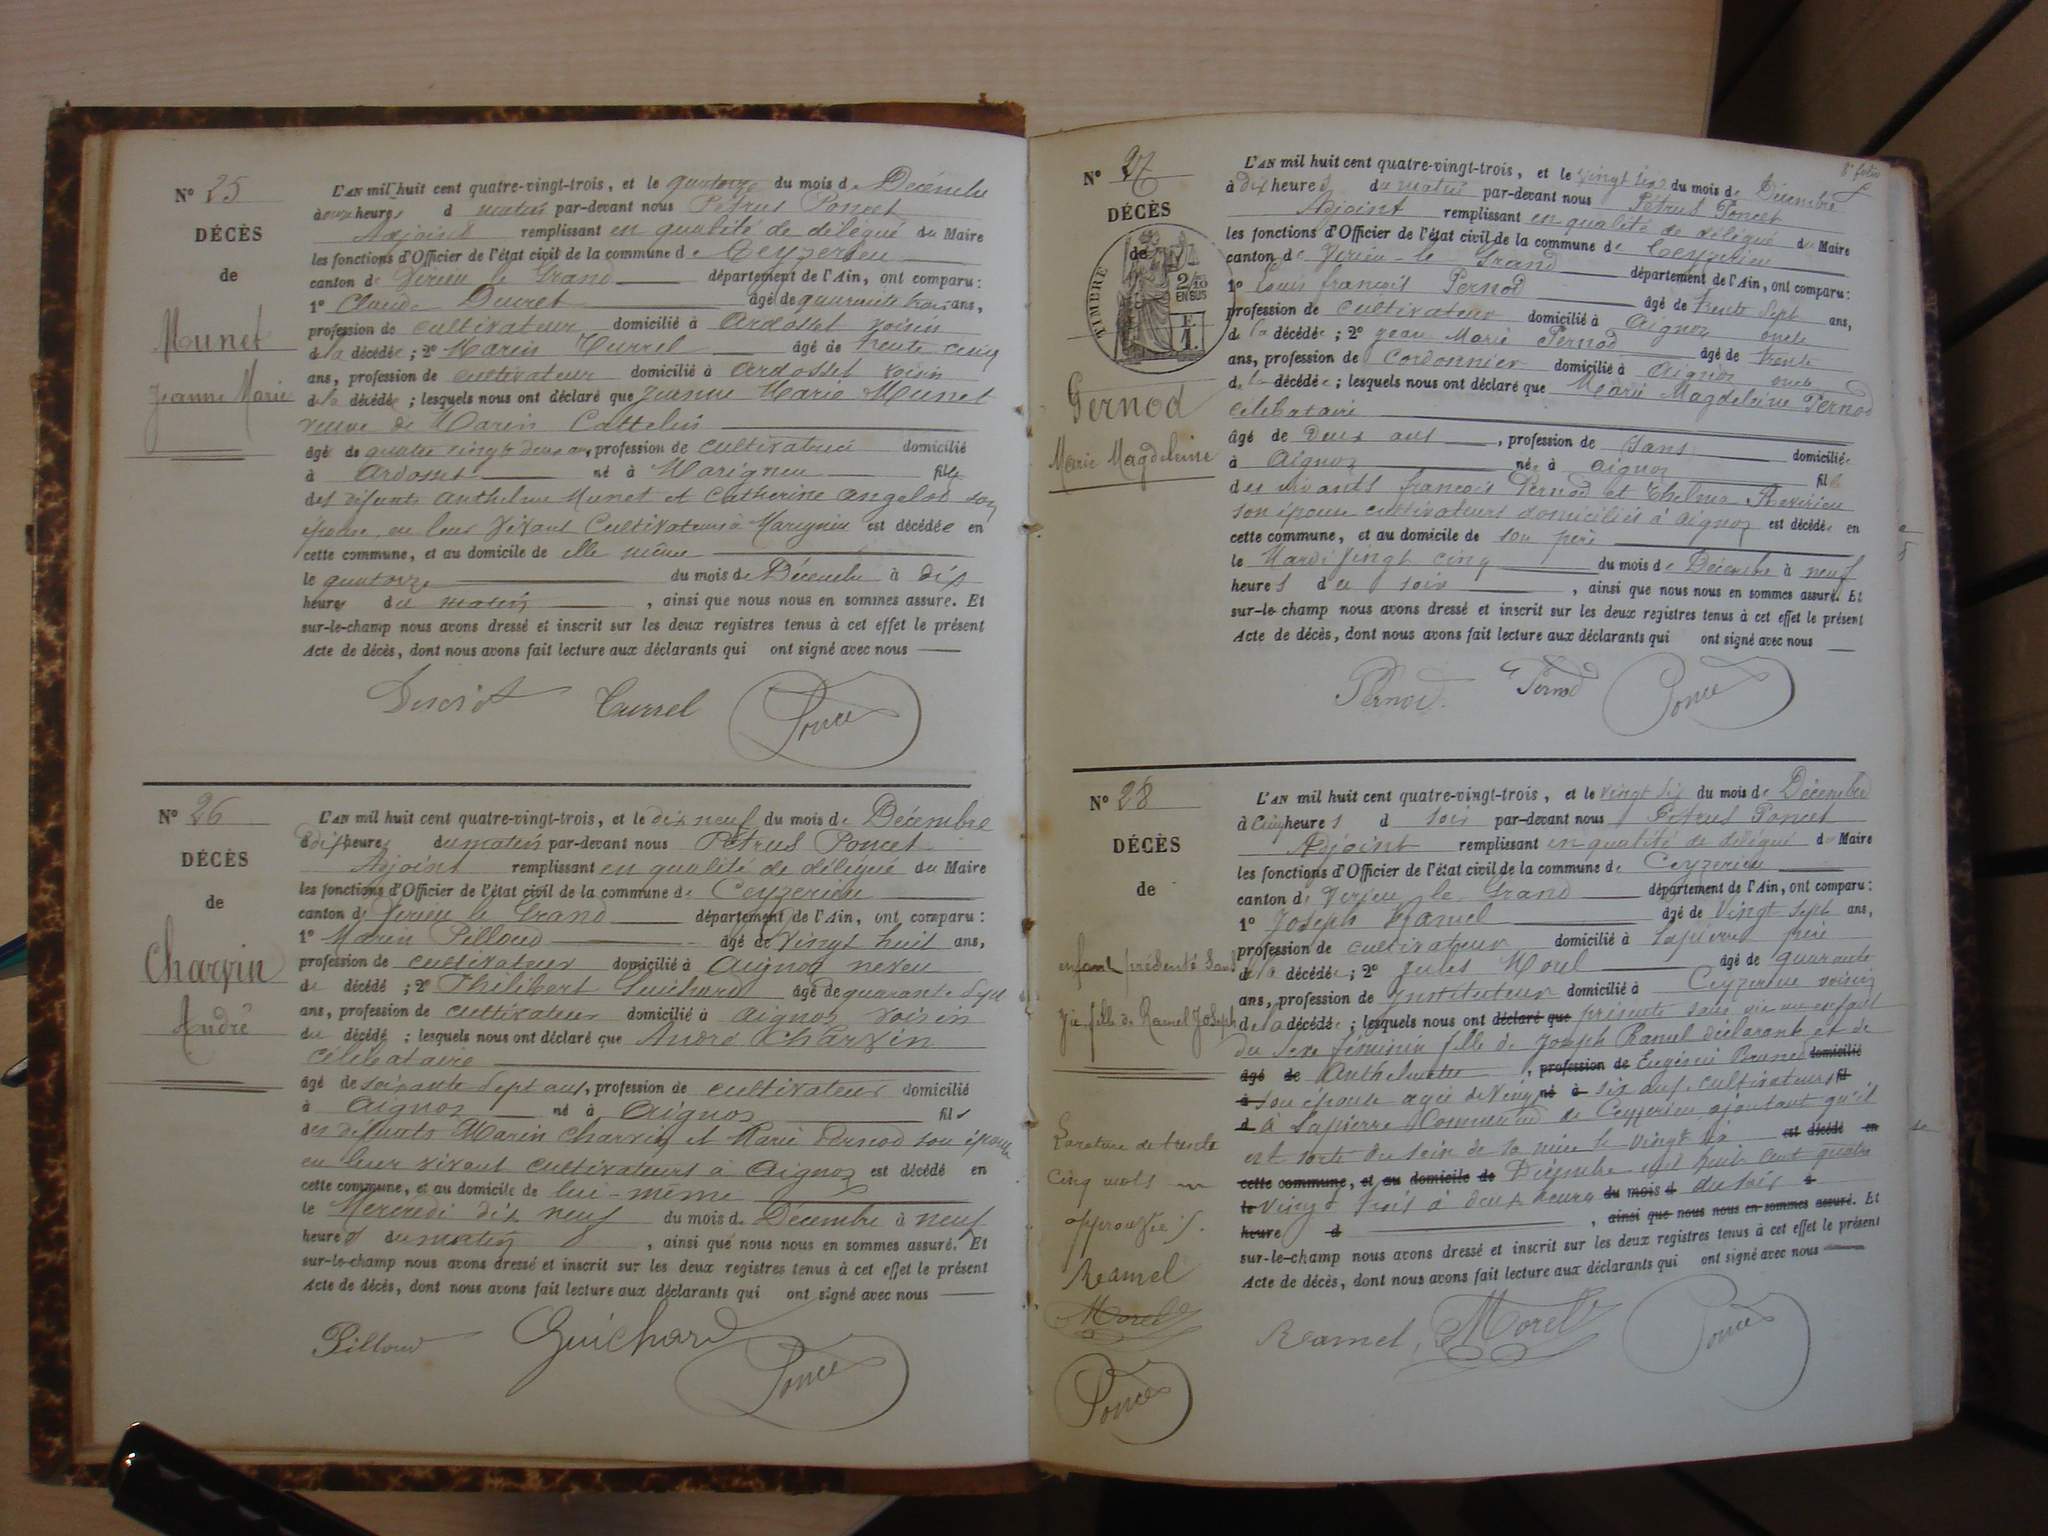 N° 25
DÉCÈS
de
Munet
Jeanne Marie
L'AN mil huit cent quatre-vingt-trois, et le quatorze du mois de Décembre
à onze heures d matin par-devant nous Pétrus Poncet
Adjoint remplissant en qualité de délégué du Maire
les fonctions d'Officier de l'état civil de la commune de Ceyzerieu
canton de Virieu le Grand département de l'Ain, ont comparu :
1° Claude Ducret âgé de quarante trois ans,
profession de cultivateur domicilié à Ardosset voisin
de la décédée ; 2° Marin Turrel âgé de trente cinq
ans, profession de cultivateur domicilié à Ardosset voisin
de la décédée ; lesquels nous ont déclaré que Jeanne Marie Munet
veuve de Marin Cattelin
âgé de quatre vingt deux ans, profession de cultivatrice domicilié
à Ardosset né à Marignieu fille
des défunts Anthelme Munet et Catherine Angelod son
épouse en leur vivant cultivateurs à Marignieu est décédée en
cette commune, et au domicile de elle même
le quatorze du mois de Décembre à dix
heures du matin , ainsi que nous nous en sommes assuré. Et
sur-le-champ nous avons dressé et inscrit sur les deux registres tenus à cet effet le présent
Acte de décès, dont nous avons fait lecture aux déclarants qui ont signé avec nous
Turrel Poncet
N° 26
DÉCÈS
de
Charvin
André
L'AN mil huit cent quatre-vingt-trois, et le dix neuf du mois de Décembre
à dix heures du matin par-devant nous Pétrus Poncet
Adjoint remplissant en qualité de délégué du Maire
les fonctions d'Officier de l'état civil de la commune de Ceyzerieu
canton de Virieu le Grand département de l'Ain, ont comparu :
1° Marin Pilloud âgé de vingt huit ans,
profession de cultivateur domicilié à Aignoz neveu
du décédé ; 2° Philibert Guichard âgé de quarante sept
ans, profession de cultivateur domicilié à Aignoz voisin
du décédé ; lesquels nous ont déclaré que André Charvin
célibataire
âgé de soixante sept ans, profession de cultivateur domicilié
à Aignoz né à Aignoz fil
des défunts Marin Charvin et Marie Pernod son épouse
en leur vivant cultivateurs à Aignoz est décédé en
cette commune, et au domicile de lui-même
le Mercredi dix neuf du mois de Décembre à neuf
heures du matin , ainsi que nous nous en sommes assuré. Et
sur-le-champ nous avons dressé et inscrit sur les deux registres tenus à cet effet le présent
Acte de décès, dont nous avons fait lecture aux déclarants qui ont signé avec nous
Pilloud Guichard Poncet
8e folio
N° 27
DÉCÈS
de
TIMBRE
2/10
EN SUS
F
1.
Pernod
Marie Magdeleine
L'AN mil huit cent quatre-vingt-trois, et le vingt six du mois de Décembre
à dix heures du matin par-devant nous Pétrus Poncet
Adjoint remplissant en qualité de délégué du Maire
les fonctions d'Officier de l'état civil de la commune de Ceyzerieu
canton de Virieu-le Grand département de l'Ain, ont comparu :
1° Louis françois Pernod âgé de trente sept ans,
profession de cultivateur domicilié à Aignoz oncle
de la décédée ; 2° Jean Marie Pernod âgé de trente
ans, profession de cordonnier domicilié à Aignoz oncle
de la décédée ; lesquels nous ont déclaré que Marie Magdeleine Pernod
célibataire
âgé de Deux ans , profession de Sans domiciliée
à Aignoz née à Aignoz fille
des vivants françois Pernod et Revirieu
son épouse cultivateurs domiciliés à Aignoz est décédée en
cette commune, et au domicile de son père
le Mardi vingt cinq du mois de Décembre à neuf
heures du soir , ainsi que nous nous en sommes assuré. Et
sur-le-champ nous avons dressé et inscrit sur les deux registres tenus à cet effet le présent
Acte de décès, dont nous avons fait lecture aux déclarants qui ont signé avec nous
Pernod Pernod Poncet
N° 28
DÉCÈS
de
enfant présenté sans
vie fille de Ramel Joseph
L'AN mil huit cent quatre-vingt-trois, et le vingt six du mois de Décembre
à cinq heures d soir par-devant nous Pétrus Poncet
Adjoint remplissant en qualité de délégué du Maire
les fonctions d'Officier de l'état civil de la commune de Ceyzerieu
canton de Virieu le Grand département de l'Ain, ont comparu :
1° Joseph Ramel âgé de Vingt sept ans,
profession de cultivateur domicilié à Lapierre père
de la décédée ; 2° Jules Morel âgé de quarante
ans, profession de Instituteur domicilié à Ceyzerieu voisin
de la décédée ; lesquels nous ont déclaré que présenté sans vie un enfant
du sexe féminin fille de Joseph Ramel déclarant et de
âgé de Anthelmette , profession de Eugénie Brunod domicilié
à son épouse agée de Vingt né à six ans, cultivateurs fil
d à Lapierre Commune de Ceyzerieu ajoutant qu'il
est sorti du sein de sa mère le vingt six est décédé en
cette commune, et au domicile de Décembre mil huit cent quatre
le vingt trois à deux heures du mois d du soir à
heure d , ainsi que nous nous en sommes assuré. Et
sur-le-champ nous avons dressé et inscrit sur les deux registres tenus à cet effet le présent
Acte de décès, dont nous avons fait lecture aux déclarants qui ont signé avec nous
Ramel, Morel Poncet
La rature de trente
cinq mots
approuvée
Ramel
Morel
Poncet